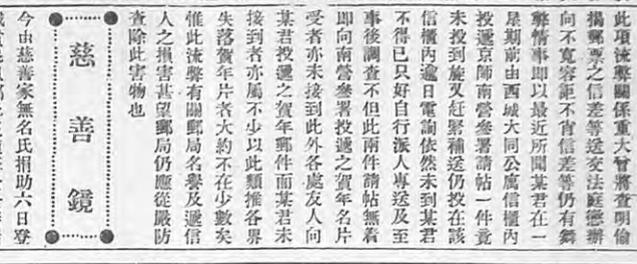 此項流弊關係重大曾將查明偷
揭郵票之信差等送交法庭懲辦
向不寬容詎不肖信差等仍有舞
弊情事即以最近所聞某君在一
星期前由西城大同公寓信櫃內
投遞京師南營參署請帖一件竟
未投到旋又赶緊補送仍投在該
信櫃內遞日電詢依然未到某君
不得已只好自行派人專送及至
事後調查不但此兩件請帖無着
即向南營參署投遞之賀年名片
受者亦未接到此外各處友人向
某君投遞之賀年郵件而某君未
接到者亦屬不少以此類推各界
失落賀年片者大約不在少數矣
惟此流弊有關郵局名譽及遞信
人之損害甚望郵局仍應從嚴防
查除此害物也
慈善鏡
今由慈善家無名氏捐助六日登